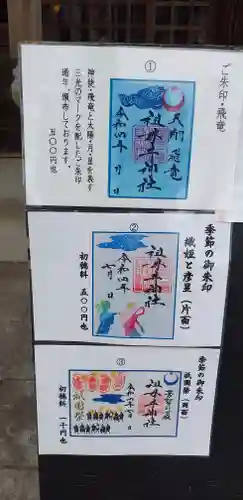 ①
ご朱印・飛竜
天翔 飛竜
祖母井神社
令和四年 月 日
神使・飛竜と太陽・月・星を表す
三光のマークを配したご朱印
通年、頒布しております。
五〇〇円
②
季節の御朱印
織姫と彦星(片面)
祖母井神社
令和四年
七月 日
初穂料 五〇〇円也
③
季節の御朱印
祇園祭(両面)
祖母井神社
祇園祭
初穂料 一千円也